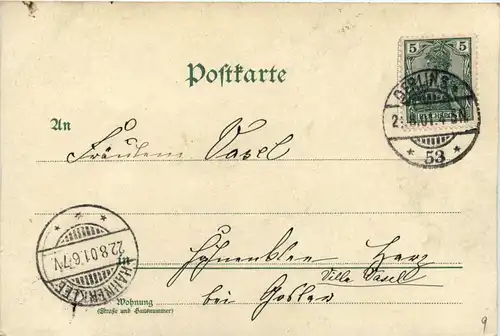 5 5
Postkarte
BERLIN S.
2 .8.01.
* 53 *
An
Fräulein Vasel
22.8.01.6-7N
HAHNENKLEE
in Hahnenklee Harz
Villa Vasel
Wohnung
(Straße und Hausnummer)
bei Goslar
9